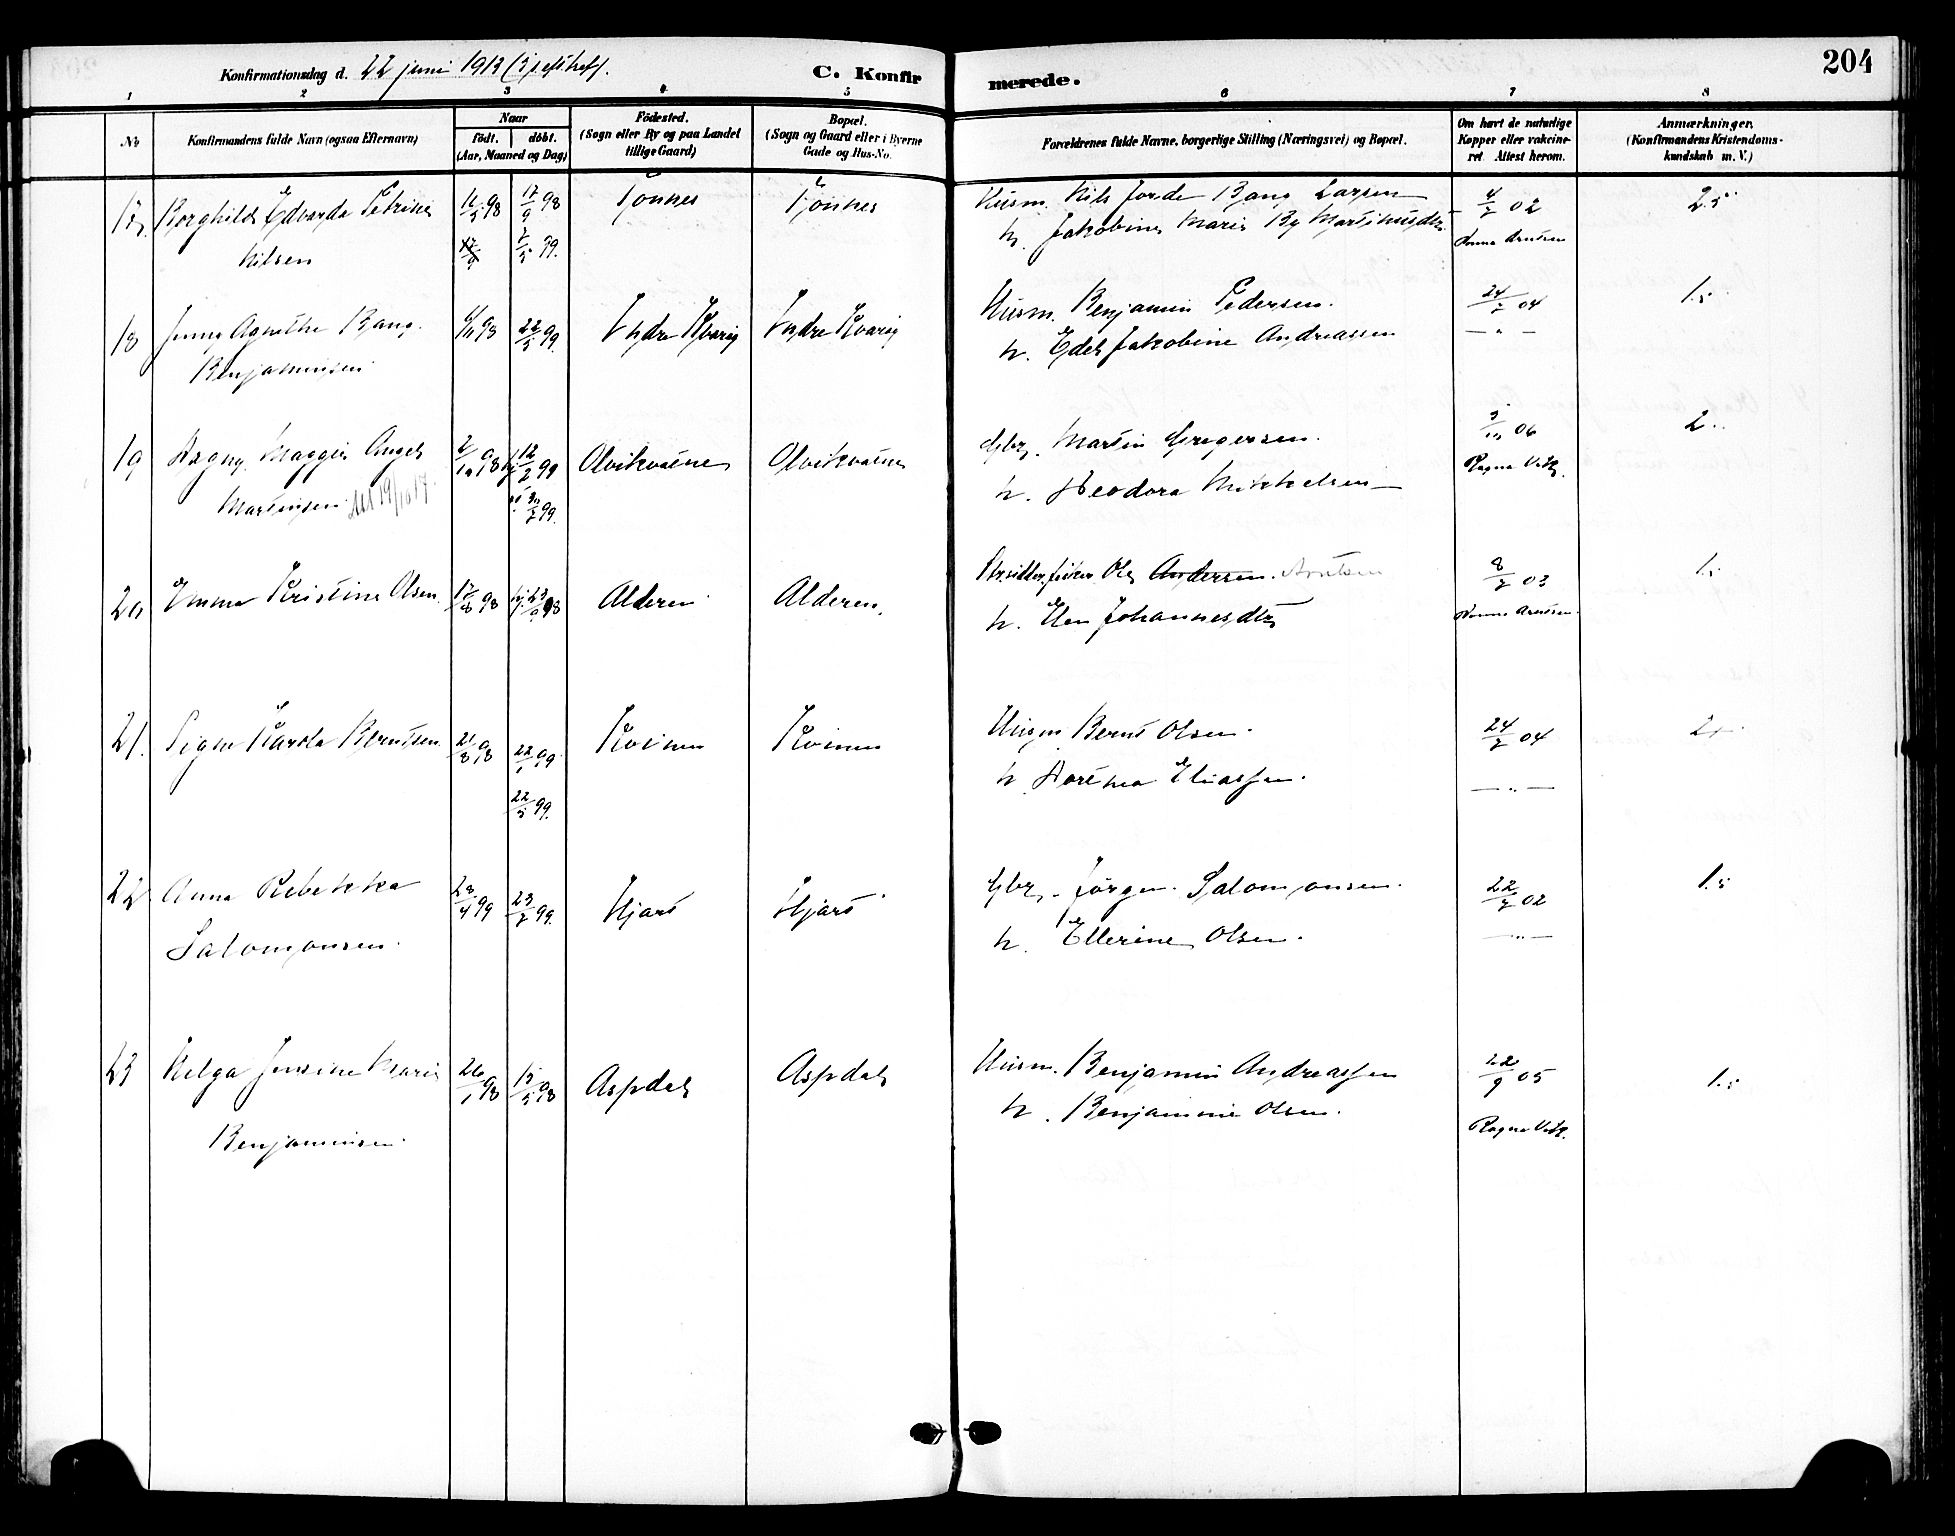 204
Konfirmationsdag d. 22 juni 1913 (3 s. eft. tref). C. Konfirmerede.
1 2 3 4 5 6 7 8
No
Konfirmandens fulde Navn (ogsaa Efternavn)
Naar
født. døbt.
(Aar, Maaned og Dag)
Fødested.
(Sogn eller By og paa Landet
tillige Gaard)
Bopæl.
(Sogn og Gaard eller i Byerne
Gade og Hus-No.
Forældrenes fulde Navne, borgerlige Stilling (Næringsvei) og Bopæl.
Om havt de naturlige
Kopper eller vakcine-
ret. Attest herom.
Anmærkninger.
(Konfirmandens Kristendoms-
kundskab m. V.)
17. Borghild Edvarda Petrine 16/5 98 17/9 98 Tonnes Tonnes Husm. Nils Jorde Bang Larsen 4/7 02 2.5
Nilsen 17/9 7/5 99. h. Jakobine Marie By Martinusdtr. Anna Arntsen
18 Jenny Agnethe Bang 6/11 98 22/5 99. Indre Kvarøy Indre Kvarøy Husm. Benjamin Pedersen. 24/7 04 1.5
Benjaminsen h. Edel Jakobine Andreassen — " —
19 Dagny Maggie Angel 2/10 98 hj. 12/2 99 Olvikvatne Olvikvatne Gbr. Martin Gregersen. 3/10 06 2.
Martinsen 30/7 99. h. Teodora Mikkelsen Ragna Veth.
20 Emma Kristine Olsen 17/8 98 hj. 23/9 98 Alderen Alderen. Strsidder, fisker Ole Andersen. Arntsen 8/7 03 1.5
h. Elen Johannesdtr. Anna Arntsen
21. Signe Karola Berntsen 21/8 98 22/1 99 Kvinen Kvinen Husm Bernt Olsen. 24/7 04 2.
22/5 99. h. Dorthea Eliassen. — " —
22 Anna Rebekka 23/4 99 23/7 99. Hjart Hjart Gbr. Jørgen Salomonsen. 22/7 02 1.5
Salomonsen. h. Ellerine Olsen. — " —
23 Helga Jensine Marie 26/1 98 15/5 98 Aspdal Aspdal Husm. Benjamin Andreassen 22/9 05 1.5
Benjaminsen. h. Benjamine Olsen. Ragna Veth.